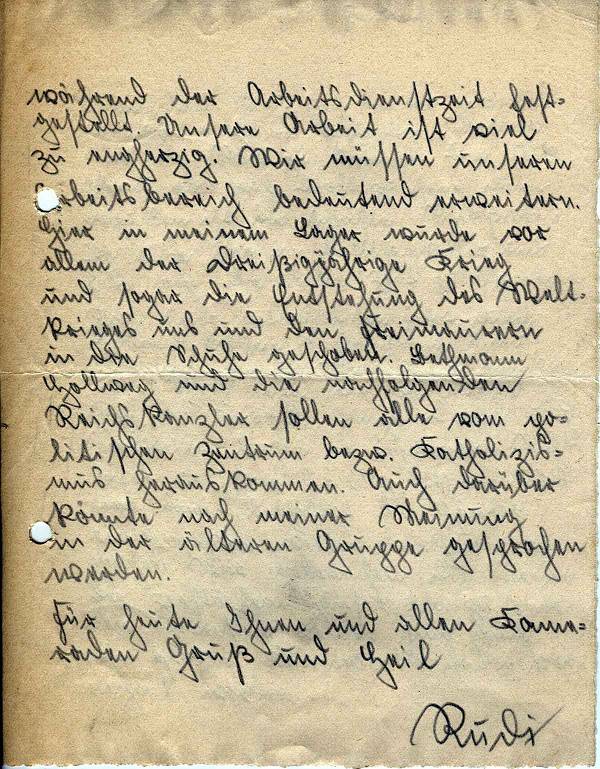 während der Arbeitsdienstzeit fest-
gestellt. Unsere Arbeit ist viel
zu engherzig. Wir müssen unseren
Arbeitsbereich bedeutend erweitern.
Hier in meinem Lager wurde vor
allem der Dreißigjährige Krieg
und sogar die Entstehung des Welt-
krieges uns und den Freimaurern
in die Schuhe geschoben. Bethmann
Hollweg und die nachfolgenden
Reichskanzler sollen alle vom po-
litischen Zentrum bezw. Katholizis-
mus herauskommen. Auch darüber
könnte nach meiner Meinung
in der älteren Gruppe gesprochen
werden.
Für heute Ihnen und allen Kame-
raden Gruß und Heil
Rudi